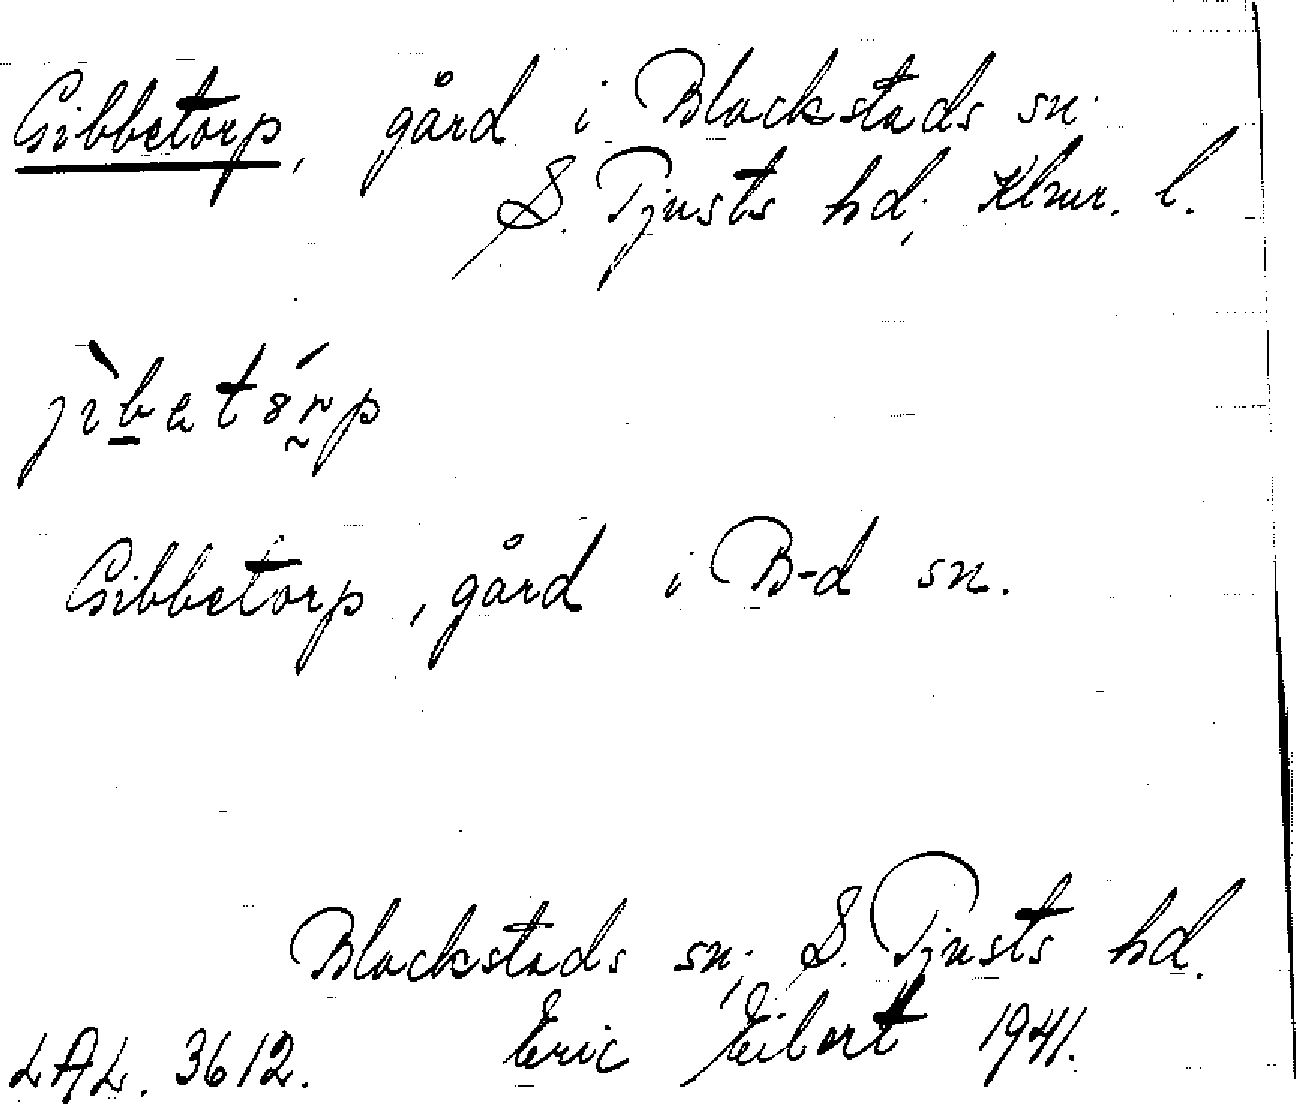 Gibbetorp, gård i Blackstads sn.
S. Tjusts hd, Klmr. l.
Gibbetorp, gård i B-d sn.
Blackstads sn, S. Tjusts hd.
LAL. 3612. Eric Eibert 1941.